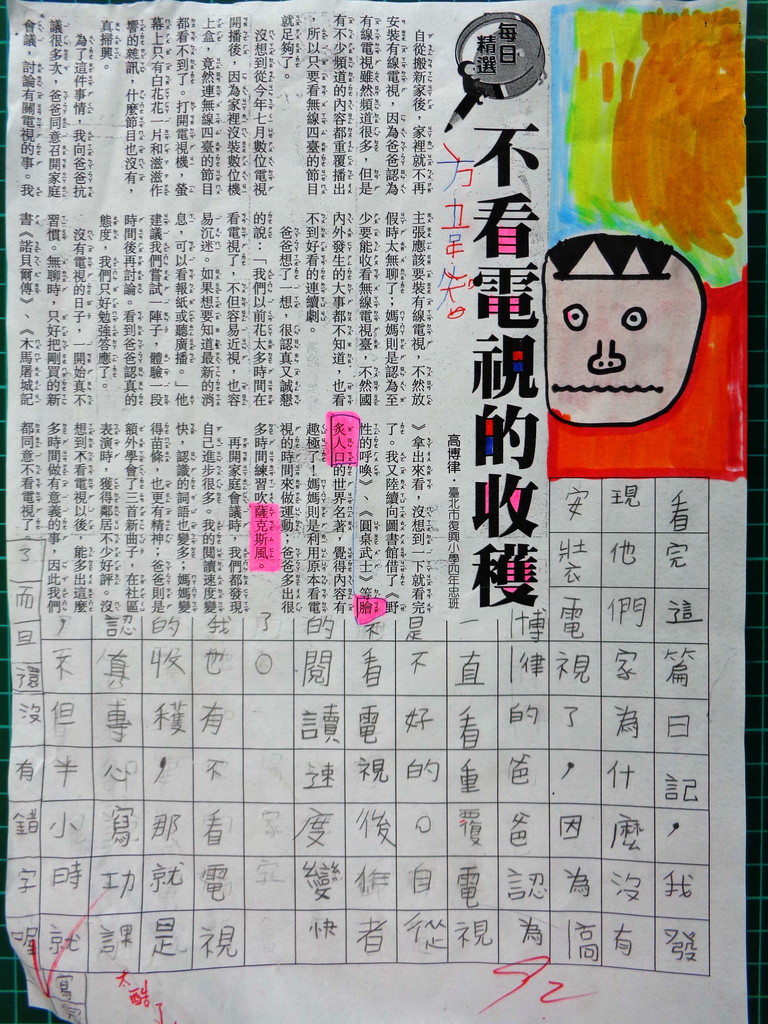 每日
精選
不看電視的收穫
高博律‧臺北市復興小學四年忠班
自從搬新家後，家裡就不再
安裝有線電視，因為爸爸認為
有線電視雖然頻道很多，但是
有不少頻道的內容都重覆播出
，所以只要看無線四臺的節目
就足夠了。
沒想到從今年七月數位電視
開播後，因為家裡沒裝數位機
上盒，竟然連無線四臺的節目
都看不到了。打開電視機，螢
幕上只有白花花一片和滋滋作
響的雜訊，什麼節目也沒有，
真掃興。
為了這件事情，我向爸爸抗
議很多次，爸爸同意召開家庭
會議，討論有關電視的事。我
主張應該要裝有線電視，不然放
假時太無聊了；媽媽則是認為至
少要能收看無線電視臺，不然國
內外發生的大事都不知道，也看
不到好看的連續劇。
爸爸想了一想，很認真又誠懇
的說：「我們以前花太多時間在
看電視了，不但容易近視，也容
易沉迷。如果想要知道最新的消
息，可以看報紙或聽廣播。」他
建議我們嘗試一陣子，體驗一段
時間後再討論。看到爸爸認真的
態度，我們只好勉強答應了。
沒有電視的日子，一開始真不
習慣。無聊時，只好把剛買的新
書《諾貝爾傳》、《木馬屠城記
》拿出來看，沒想到一下就看完
了。我又陸續向圖書館借了《野
性的呼喚》、《圓桌武士》等膾
炙人口的世界名著，覺得內容有
趣極了！媽媽則是利用原本看電
視的時間來做運動；爸爸多出很
多時間練習吹薩克斯風。
再開家庭會議時，我們都發現
自己進步很多。我的閱讀速度變
快，認識的詞語也變多；媽媽變
得苗條，也更有精神；爸爸則是
額外學會了三首新曲子，在社區
表演時，獲得鄰居不少好評。沒
想到不看電視以後，能多出這麼
多時間做有意義的事，因此我們
都同意不看電視了。
看完這篇日記，我發
現他們家為什麼沒有
安裝電視了，因為高
博律的爸爸認為
一直看重覆電視
是不好的。自從
不看電視後作者
的閱讀速度變快
了。
我也有不看電視
的收穫，那就是
認真專心寫功課
，不但半小時就
寫完
了而且還沒有錯字喔
太酷了
92